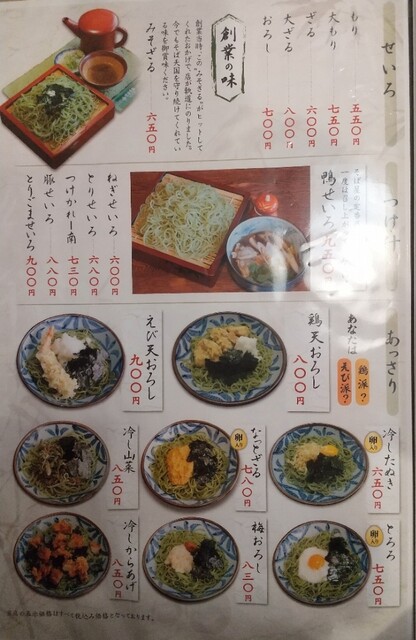 せいろ
もり 五五〇円
大もり 七五〇円
ざる 六〇〇円
大ざる 八〇〇円
おろし 七〇〇円
創業の味
創業当時、この"みそざる"がヒットして
くれたおかげで、店が軌道にのりました。
今でもそば天国を守り続けてくれてい
る味を御賞味ください。
みそざる 六五〇円
つけ汁
鴨せいろ 九五〇円
ねぎせいろ 六〇〇円
とりせいろ 六八〇円
つけかれー南 七三〇円
豚せいろ 八八〇円
とりごませいろ 九〇〇円
あっさり
あなたは
鶏派?
えび派?
鶏天おろし 八〇〇円
えび天おろし 九〇〇円
冷したぬき 六五〇円
卵入り
なっとざる 七八〇円
卵入り
冷し山菜 八五〇円
とろろ 七五〇円
卵入り
梅おろし 八三〇円
冷しからあげ 八五〇円